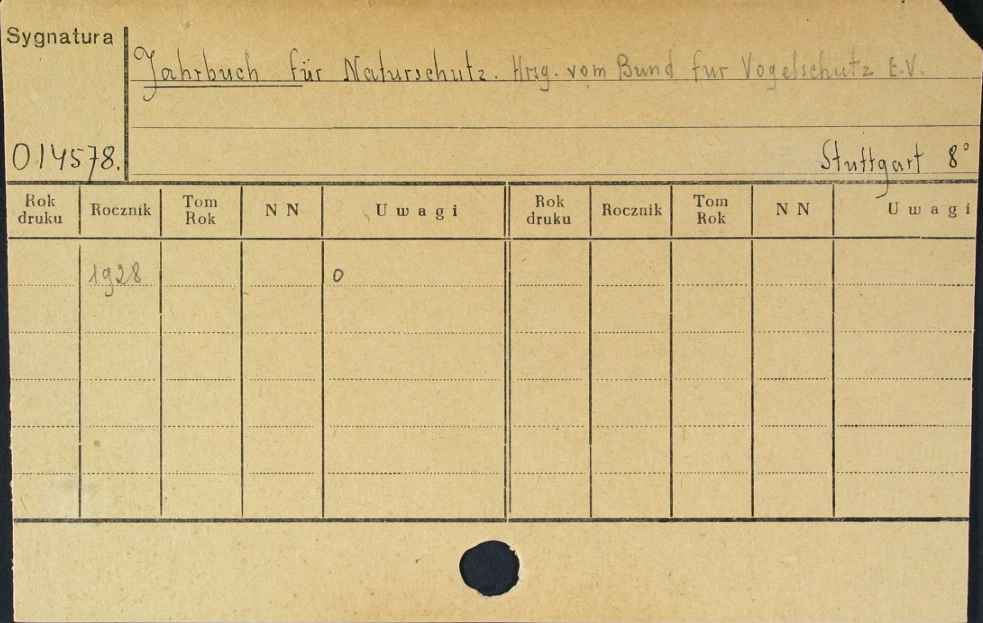 Sygnatura
Jahrbuch für Naturschutz. Hrsg. vom Bund fur Vogelschutz E.V.
014578.
Stuttgart 8°
Rok druku Rocznik Tom Rok N N Uwagi Rok druku Rocznik Tom Rok N N Uwagi
1928 0